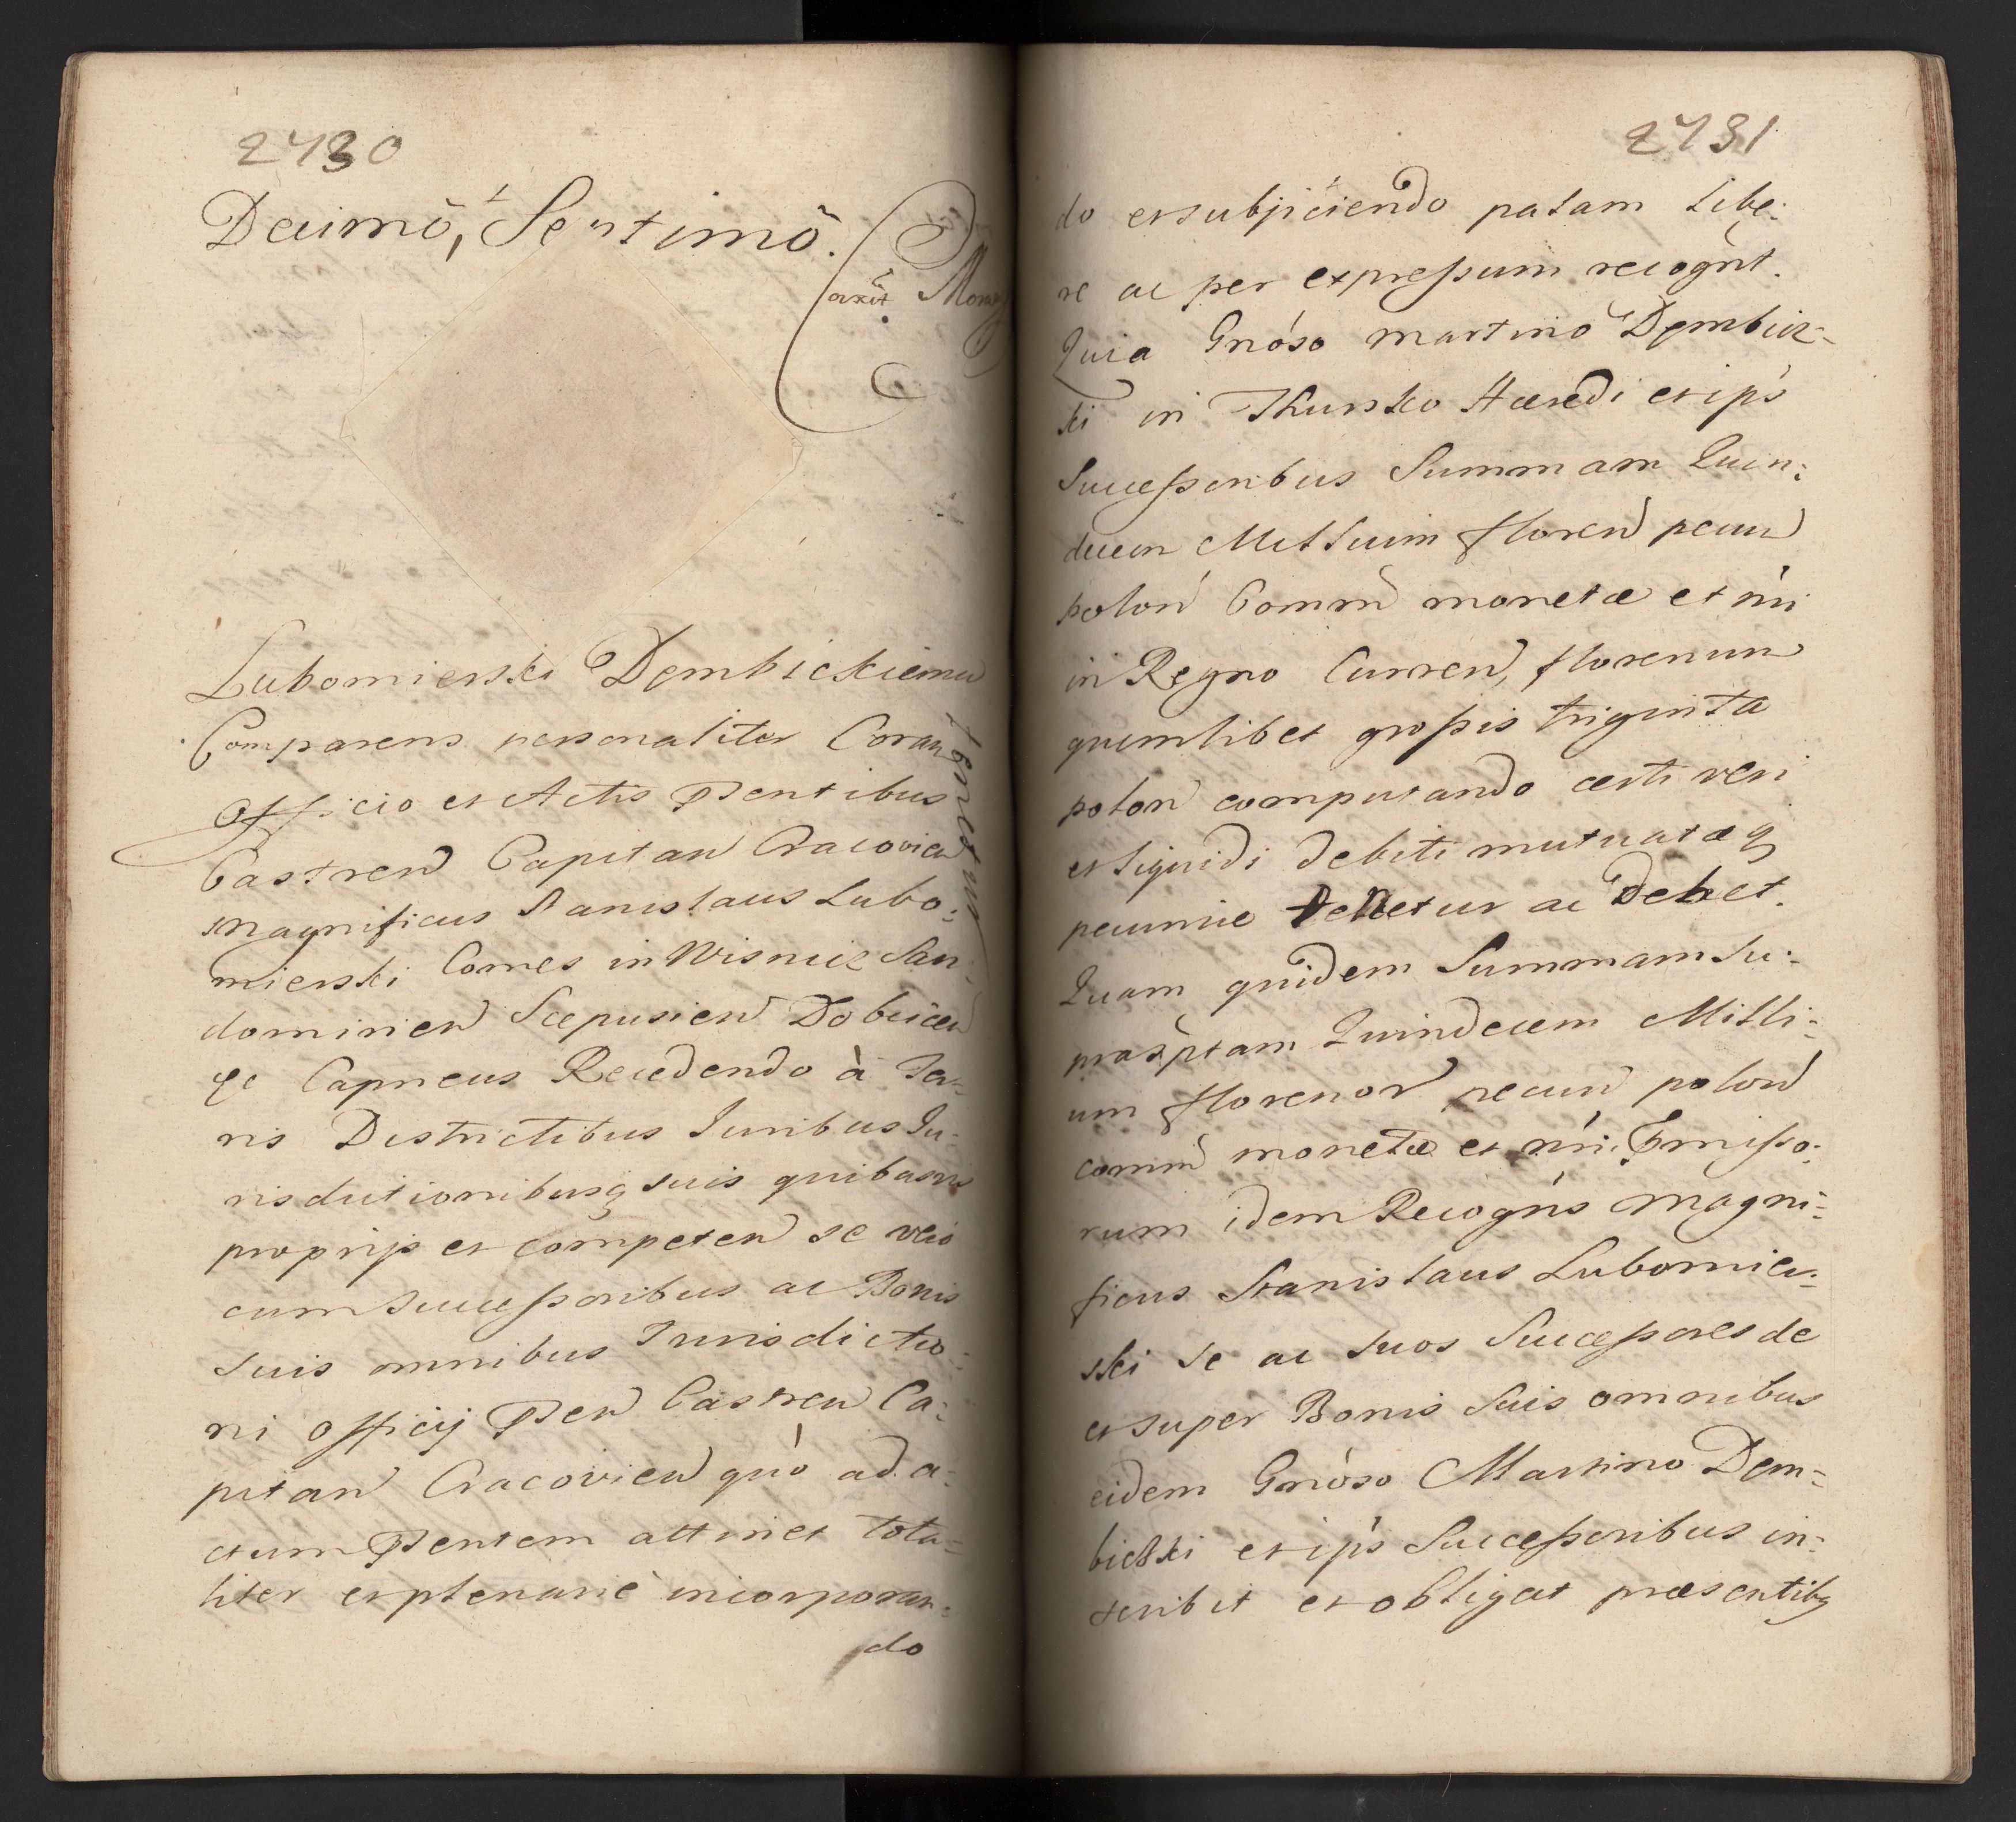 2730
Decimo, Septimo.
Lubomierski Dembickiemu
Comparens personaliter Coram
Officio et Actis Pntibus
Castren Capitan Cracovien
Magnificus Stanislaus Lubo:
mierski Comes in Wisnicz San:
domirien Scepusien Dobcicen
Capneus Recedendo à Ter:
ris Districtibus Juribus Ju:
risdictionibusq suis quibusvis
proprijs et competen se vero
cum Successoribus ac Bonis
suis omnibus Jurisdictio:
ni officij Pnen Castren Ca:
pitan Cracovien quò ad a:
ctum Pntem attinet tota:
liter et plenariè incorporan:
do
2731
do et subjiciendo palam libe:
re ac per expressum recognt.
Quia Gnoso Martino Dembic:
ki in Hæredi et ips
Successoribus Summam Quin:
decem Millium floren pecun
polon Comm monetæ et nri
in Regno Curren, florenum
quemlibet grossis triginta
polon computando certi veri
et liquidi debiti mutuatæq
pecuniæ tenetur ac debet.
Quam quidem Summam Su:
prascptam Quindecem Milli:
um florenor pecun polon
comm monetæ et nri Pmisso:
rum idem Recogns Magni:
ficus Stanislaus Lubomier:
ski se ac suos Successores de
et super Bonis Suis omnibus
eidem Gnoso Martino Dem:
bickki et ips Successoribus in:
scribit et obligat præsentibq